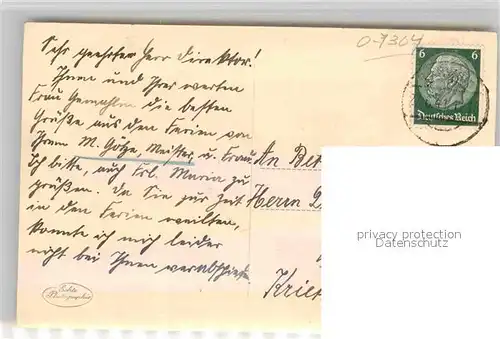 Sehr geehrter Herr Direktor!
Ihnen und Ihrer werten
Frau Gemahlin die besten
Grüße aus den Ferien von
Ihrem M. Gotze, Meister, u. Frau
Ich bitte, auch Frl. Maria zu
grüßen. Da Sie zur Zeit
in den Ferien weilten,
konnte ich mich leider
nicht bei Ihnen verabschieden
0-7364
6 6
Deutsches Reich
An Bet
Herrn D
Krie
Echte
Photographie
privacy protection
Datenschutz